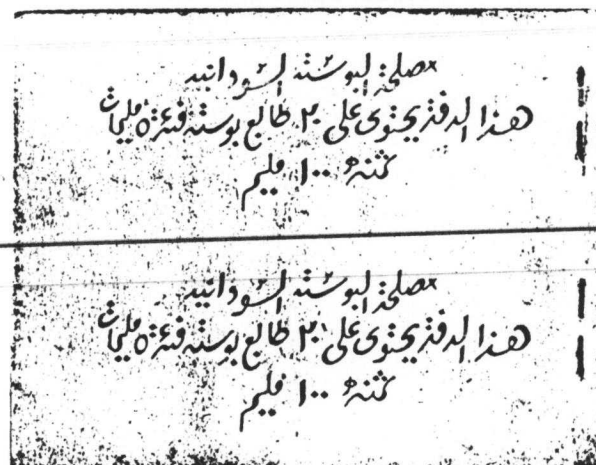 مصلحة البوسته السودانيه
هذا الدفتر يحتوى على ٢٠ طابع بوسته فئة ٥ مليمات
ثمنه ١٠٠ مليم
مصلحة البوسته السودانيه
هذا الدفتر يحتوى على ٢٠ طابع بوسته فئة ٥ مليمات
ثمنه ١٠٠ مليم